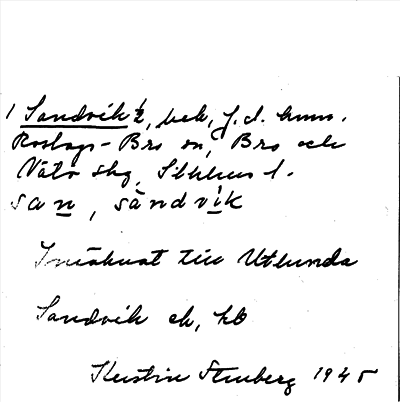 1 Sandvik½, beb, f.d. hmn.
Roslags-Bro sn, Bro och
Vätö skg, Sthlms l.
san, sàndvík
Inräknat till Utlunda
Sandvik ek, hb
Kerstin Stenberg 1945